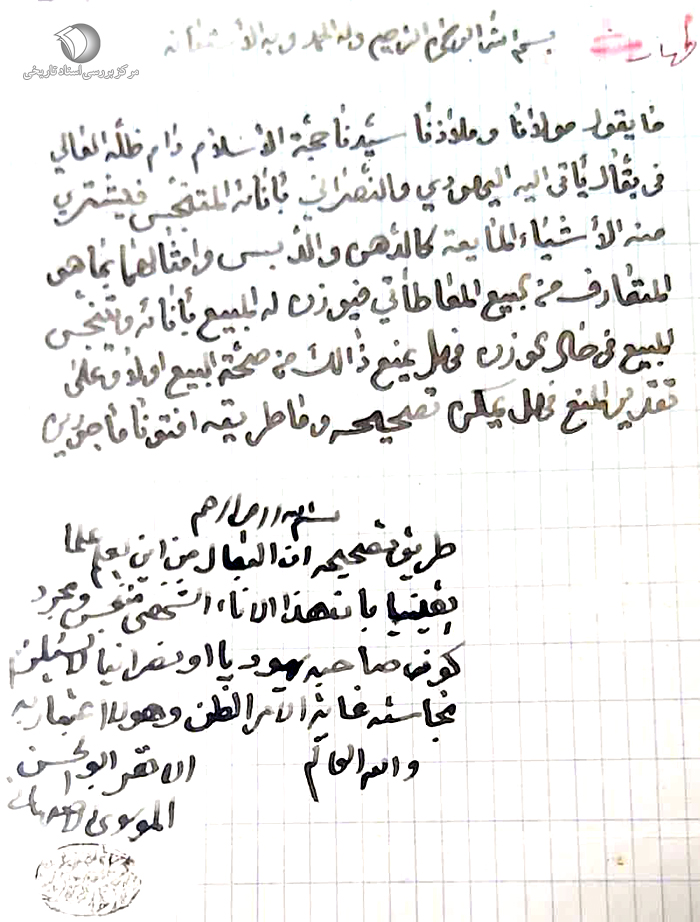 طهارت
بسم الله الرحمن الرحيم وله الحمد وبه الأستعانه
مركز بررسى اسناد تاريخى
ما يقول مولانا وملاذنا سيّدنا حجة الأسلام دام ظلّه العالي
في بقّال يأتي اليه اليهودي والنصراني بأنائه المتنجّس فيشتري
منه الأشياء المايعة كالدهن والدبس وامثالهما بما هو
المتعارف من بيع المعاطاتي فيوزن له المبيع بأنائه ويتنجّس
المبيع في حال الوزن فهل يمنع ذالك من صحّة البيع اولا وعلى
تقدير المنع فهل يمكن تصحيحه وما طريقه افتونا مأجورين
بسم الله الرحمن الرحيم
طريق تصحيحه ان البقال من اين يعلم علما
يقينيا بان هذا الاناء الشخصي متنجس ومجرد
كون صاحبه يهوديا او نصرانيا لا يستلزم
نجاسته غاية الامر الظن وهو لا اعتبار به
والله العالم الاحقر ابو الحسن
الموسوى الاصفهانى